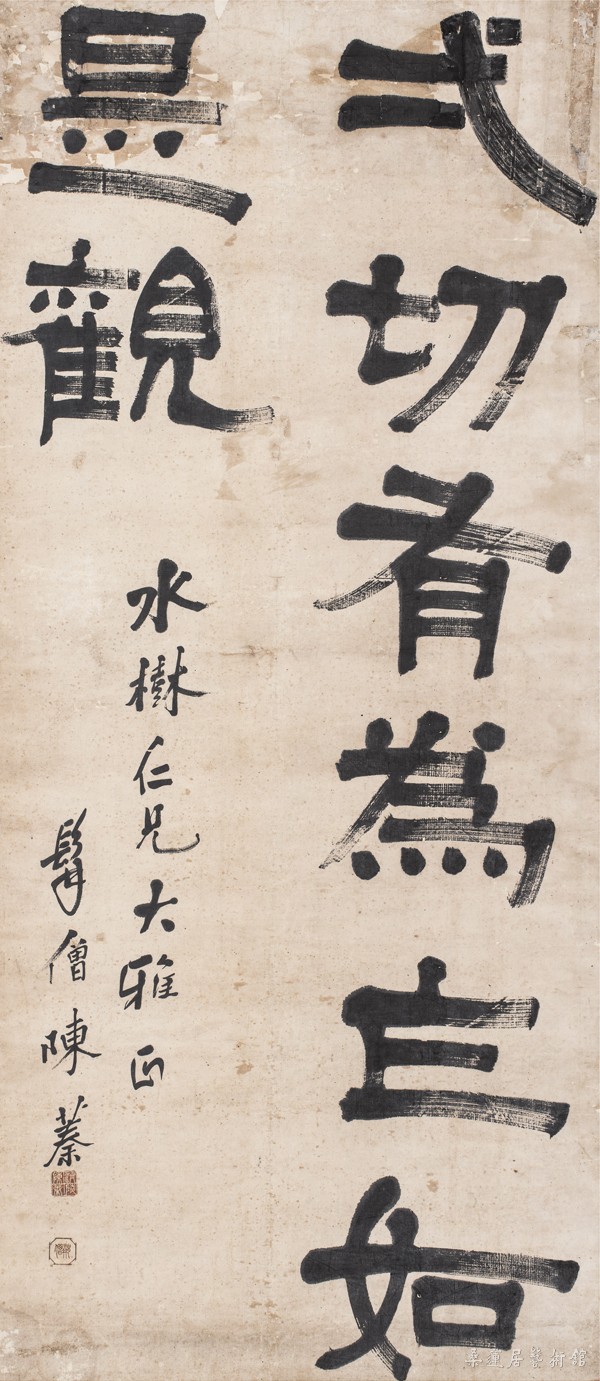 弌切有為乍如
是觀
水樹仁兄大雅正
髯僧陳蓁
居藝術館